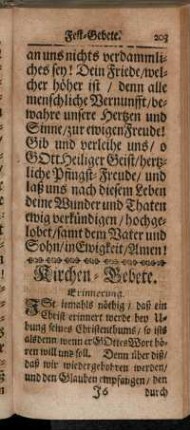 Fest-Gebete. 203
an uns nichts verdammli-
ches sey! Dein Friede/wel-
cher höher ist / denn alle
menschliche Vernunfft/be-
wahre unsere Hertzen und
Sinne/zur ewigen Freude!
Gib und verleihe uns/ o
GOtt Heiliger Geist/hertz-
liche Pfingst-Freude/ und
laß uns nach diesem Leben
deine Wunder und Thaten
ewig verkündigen/ hochge-
lobet/samt dem Vater und
Sohn/in Ewigkeit/Amen!
Kirchen-Gebete.
Erinnerung.
JSt iemahls nöthig/ daß ein
Christ erinnert werde bey U-
bung seines Christenthums/ so ists
als denn wenn er GOttes Wort hö-
ren will und soll. Denn über diß/
daß wir wiedergebohren werden/
und den Glauben empfangen/ den
J6 durch